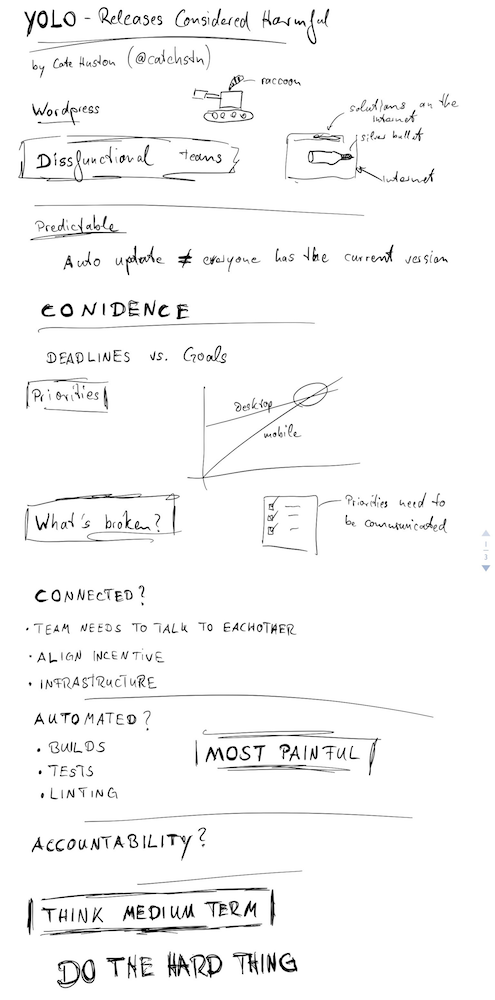 YOLO - Releases Considered Harmful
by Cate Huston (@catehstn)
raccoon
Wordpress
solutions on the
internet
silver bullet
Dissfunctional teams
internet
Predictable
Auto update ≠ everyone has the current version
CONIDENCE
DEADLINES vs. Goals
Priorities
desktop
mobile
What's broken?
Priorities need to
be communicated
1
3
CONNECTED?
• TEAM NEEDS TO TALK TO EACHOTHER
• ALIGN INCENTIVE
• INFRASTRUCTURE
AUTOMATED?
• BUILDS
MOST PAINFUL
• TESTS
• LINTING
ACCOUNTABILITY?
THINK MEDIUM TERM
DO THE HARD THING